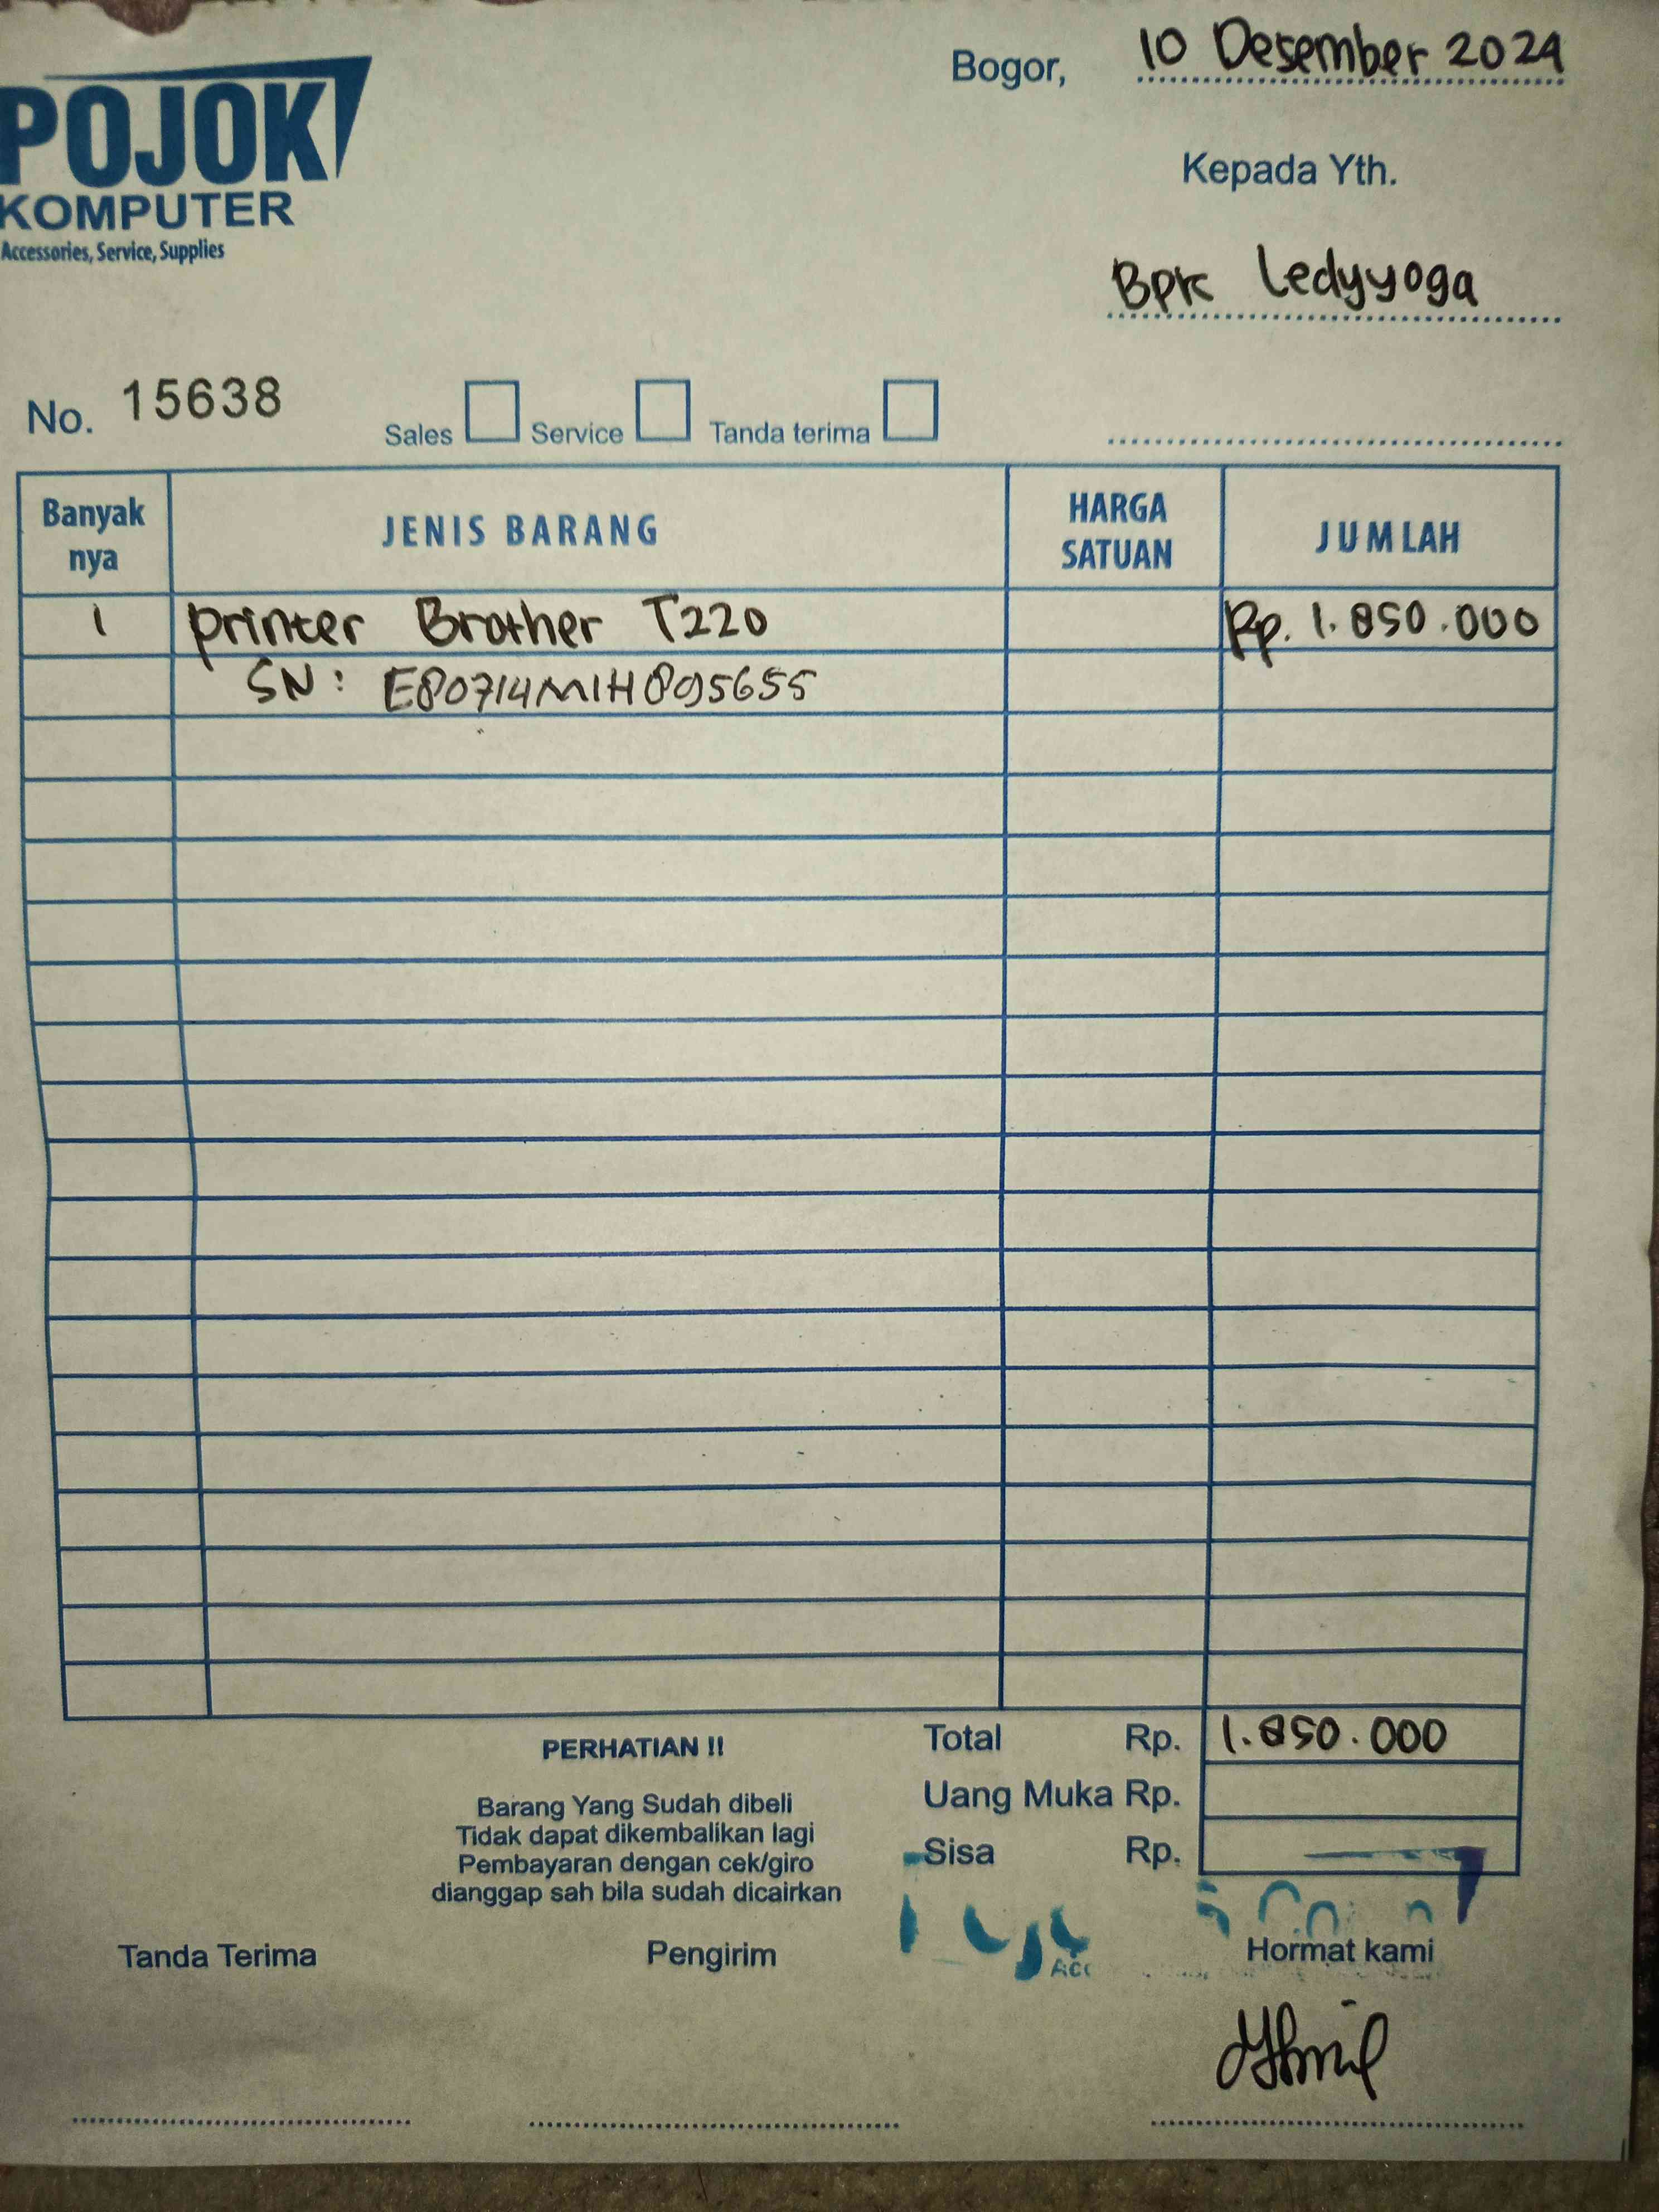 Bogor, 10 Desember 2024
POJOK
KOMPUTER
Accessories, Service, Supplies
Kepada Yth.
Bpk Ledyyoga
No. 15638
Sales Service Tanda terima
Banyak nya JENIS BARANG HARGA SATUAN JUMLAH
1 printer Brother T220 Rp. 1.850.000
SN: E80714M1H895655
Total Rp. 1.850.000
Uang Muka Rp.
Sisa Rp.
PERHATIAN !!
Barang Yang Sudah dibeli
Tidak dapat dikembalikan lagi
Pembayaran dengan cek/giro
dianggap sah bila sudah dicairkan
Tanda Terima Pengirim Hormat kami